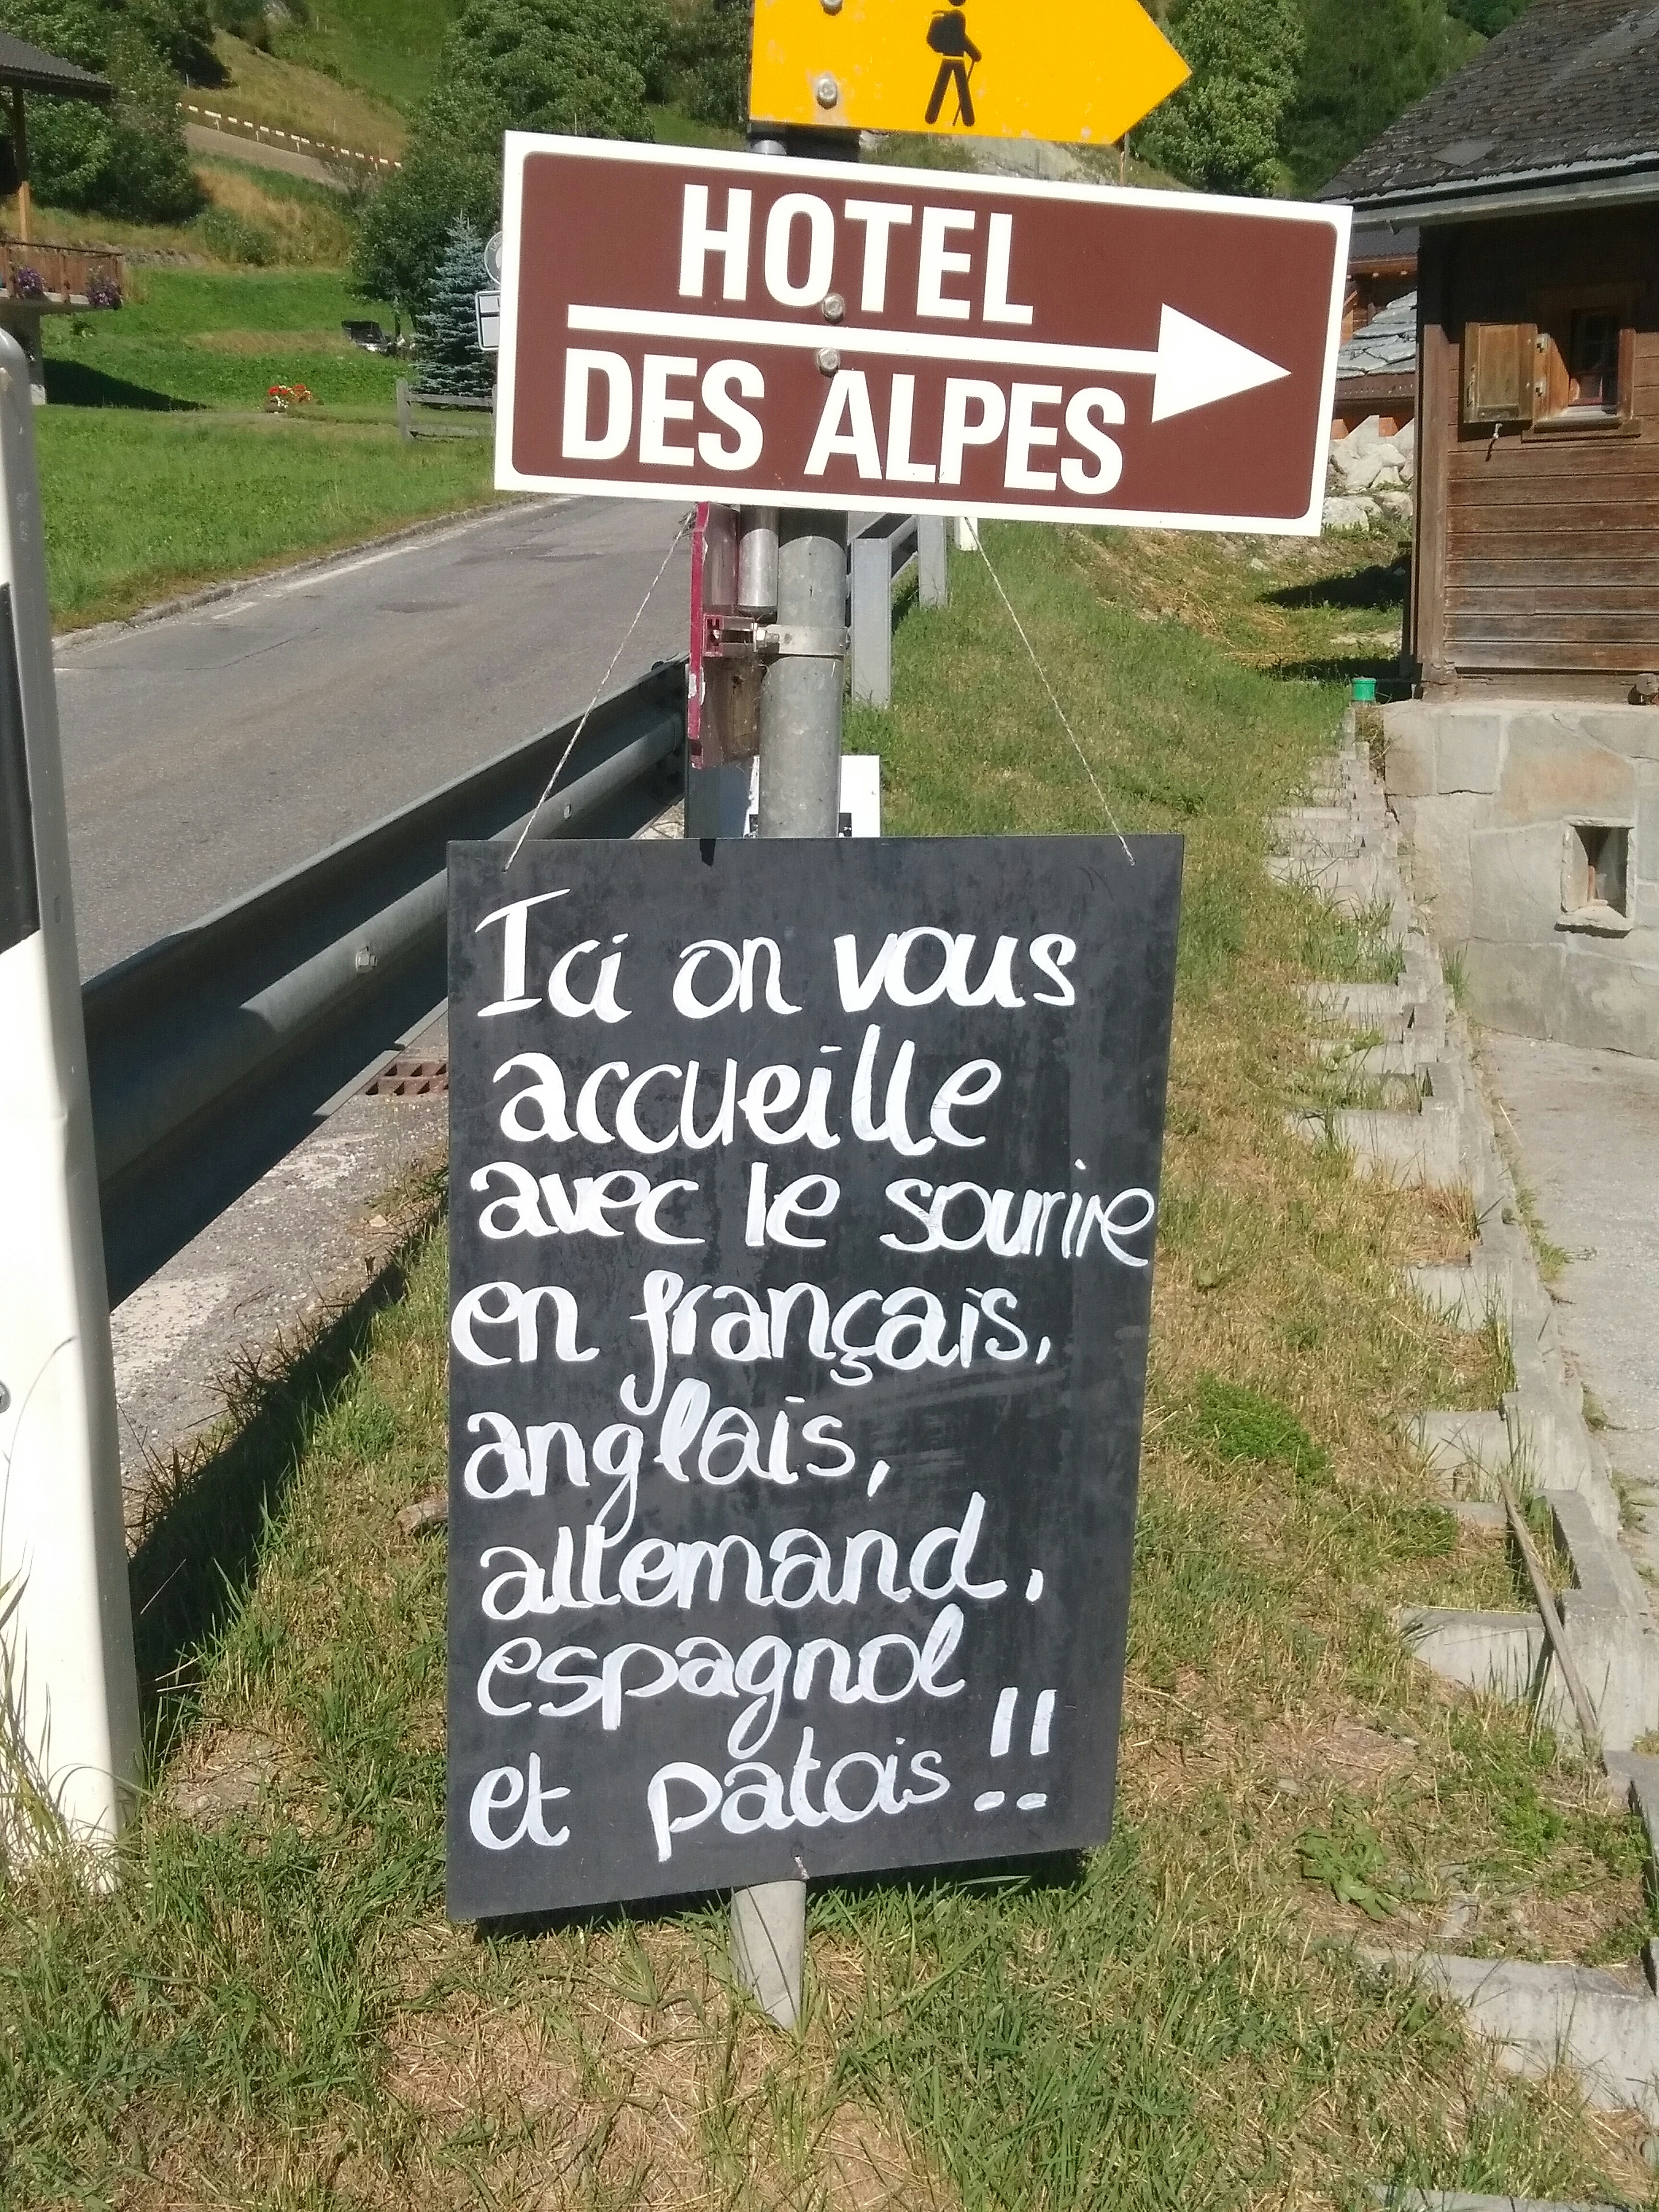 HOTEL
DES ALPES
Ici on vous
accueille
avec le sourire
en français,
anglais,
allemand,
espagnol
et patois !!